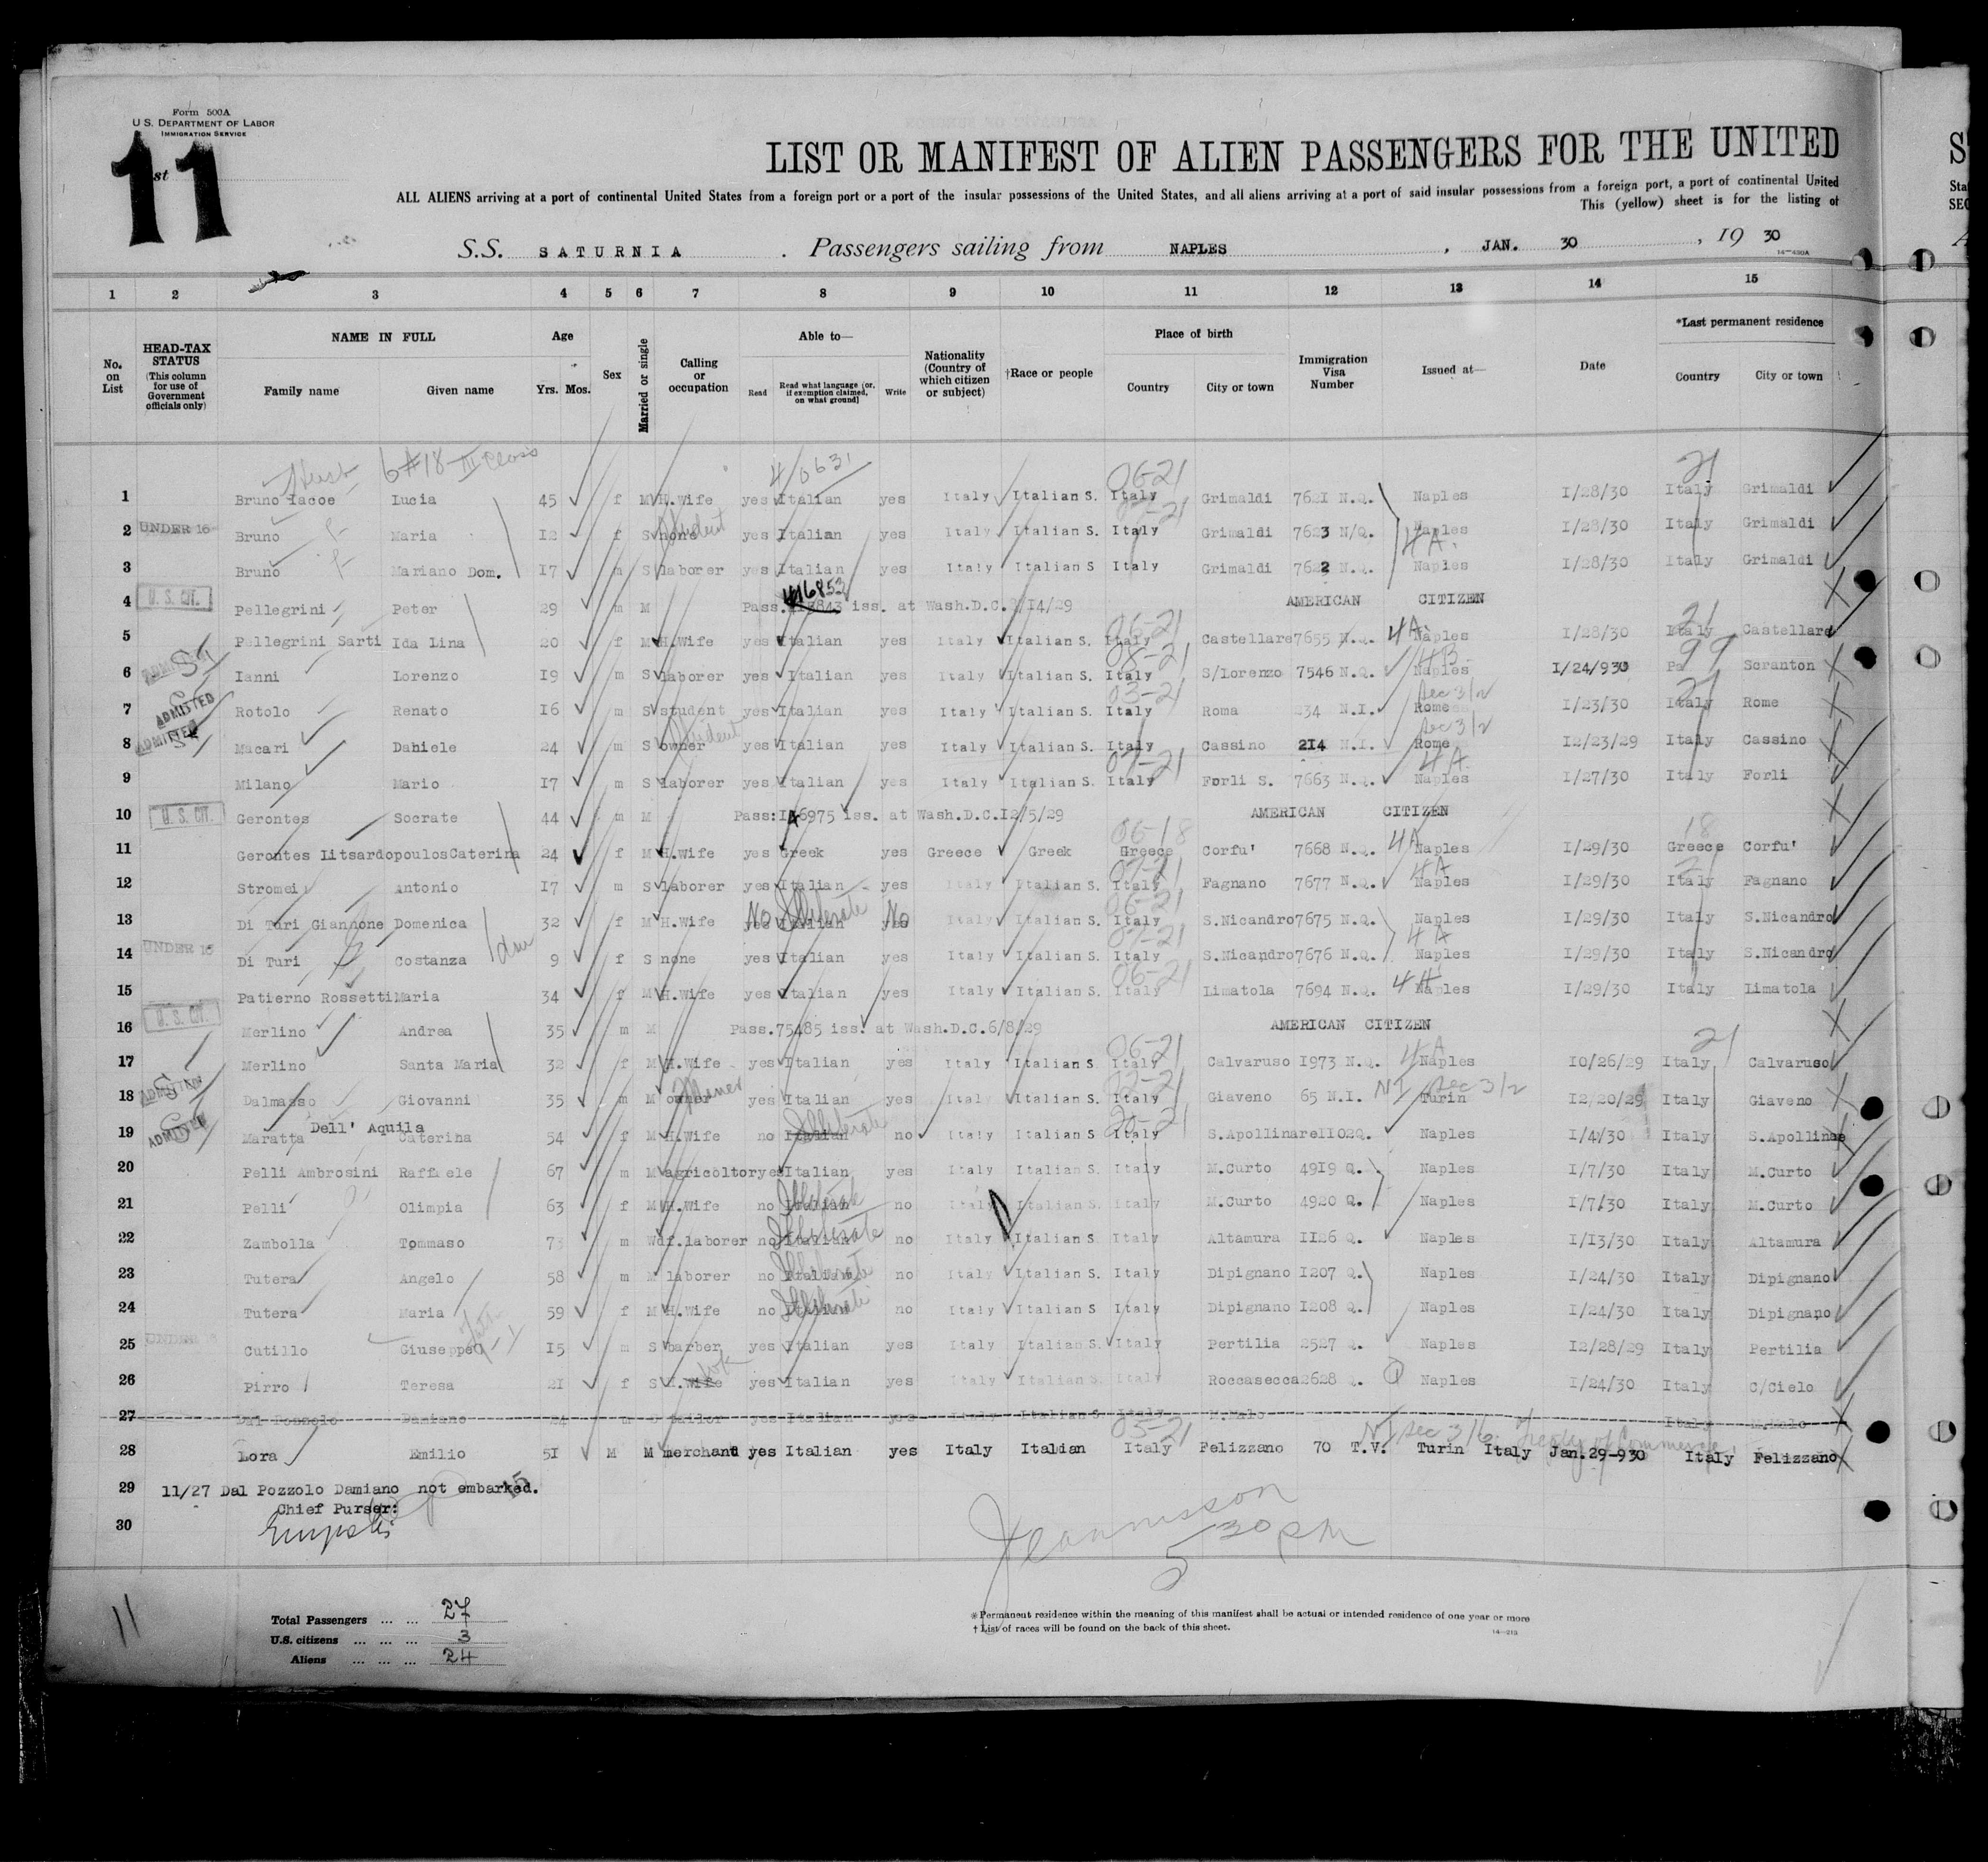 Form 500A
U.S. DEPARTMENT OF LABOR
IMMIGRATION SERVICE
11
LIST OR MANIFEST OF ALIEN PASSENGERS FOR THE UNITED
ALL ALIENS arriving at a port of continental United States from a foreign port or a port of the insular possessions of the United States, and all aliens arriving at a port of said insular possessions from a foreign port, a port of continental United
This (yellow) sheet is for the listing of
S.S. SATURNIA . Passengers sailing from NAPLES , JAN. 30 , 19 30
1 2 3 4 5 6 7 8 9 10 11 12 13 14 15
No. on List
HEAD-TAX STATUS (This column for use of Government officials only)
NAME IN FULL
Family name Given name
Age
Yrs. Mos.
Sex
Married or single
Calling or occupation
Able to—
Read Read what language (or, if exemption claimed, on what ground) Write
Nationality (Country of which citizen or subject)
†Race or people
Place of birth
Country City or town
Immigration Visa Number
Issued at—
Date
*Last permanent residence
Country City or town
6#18 III Class 4/0631 06-21 21
1 Bruno Iacoe Lucia 45 f M H.wife yes Italian yes Italy Italian S. Italy Grimaldi 7621 N.Q. Naples 1/28/30 Italy Grimaldi
2 UNDER 16 Bruno Maria 12 f S none Student yes Italian yes Italy Italian S. Italy Grimaldi 7623 N/Q. Naples 4A. 1/28/30 Italy Grimaldi
3 Bruno Mariano Dom. 17 m S laborer yes Italian yes Italy Italian S Italy Grimaldi 7622 N.Q. Naples 1/28/30 Italy Grimaldi
4 U.S. CIT. Pellegrini Peter 29 m M Pass. 416853 iss. at Wash.D.C. /14/29 AMERICAN CITIZEN
5 Pellegrini Sarti Ida Lina 20 f M H.Wife yes Italian yes Italy Italian S. Italy 06-21 Castellare 7655 N.Q. 4A Naples 1/28/30 Italy 21 Castellare
6 ADMITTED Ianni Lorenzo 19 m S laborer yes Italian yes Italy Italian S. Italy 08-21 S/Lorenzo 7546 N.Q. 4B Naples 1/24/930 Pa 99 Scranton
7 ADMITTED Rotolo Renato 16 m S student yes Italian yes Italy Italian S. Italy 03-21 Roma 234 N.I. Sec 3/2 Rome 1/23/30 Italy 21 Rome
8 ADMITTED Macari Dahiele 24 m S owner Student yes Italian yes Italy Italian S. Italy Cassino 214 N.I. Sec 3/2 Rome 12/23/29 Italy Cassino
9 Milano Mario 17 m S laborer yes Italian yes Italy Italian S. Italy 07-21 Forli S. 7663 N.Q. 4A Naples 1/27/30 Italy Forli
10 U.S. CIT. Gerontes Socrate 44 m M Pass:146975 iss. at Wash.D.C.12/5/29 AMERICAN CITIZEN
11 Gerontes Litsardopoulos Caterina 24 f M H.wife yes Greek yes Greece Greek Greece 06-18 Corfu' 7668 N.Q. 4A Naples 1/29/30 Greece 18 Corfu'
12 Stromei Antonio 17 m S laborer yes Italian yes Italy Italian S. Italy 07-21 Fagnano 7677 N.Q. 4A Naples 1/29/30 Italy 21 Fagnano
13 Di Turi Giannone Domenica 32 f M H.Wife yes No Italian Illiterate yes No Italy Italian S. Italy 06-21 S.Nicandro 7675 N.Q. Naples 1/29/30 Italy S.Nicandro
14 UNDER 16 Di Turi Costanza 9 f S none yes Italian yes Italy Italian S. Italy 07-21 S.Nicandro 7676 N.Q. 4A Naples 1/29/30 Italy S.Nicandro
15 Patierno Rossetti Maria 34 f M H.Wife yes Italian yes Italy Italian S. Italy 06-21 Limatola 7694 N.Q. 4A Naples 1/29/30 Italy Limatola
16 U.S. CIT. Merlino Andrea 35 m M Pass.75485 iss. at Wash.D.C.6/8/29 AMERICAN CITIZEN
17 Merlino Santa Maria 32 f M H.Wife yes Italian yes Italy Italian S. Italy 06-21 Calvaruso 1973 N.Q. 4A Naples 10/26/29 Italy 21 Calvaruso
18 ADMITTED Dalmasso Giovanni 35 m M owner Miner yes Italian yes Italy Italian S. Italy 02-21 Giaveno 65 N.I. NI Sec 3/2 Turin 12/20/29 Italy Giaveno
19 ADMITTED Maratta Dell' Aquila Caterina 54 f M H.Wife no Italian Illiterate no Italy Italian S Italy 20-21 S.Apollinare 1102Q. Naples 1/4/30 Italy S.Apollinae
20 Pelli Ambrosini Raffaele 67 m M agricoltor yes Italian yes Italy Italian S. Italy M.Curto 4919 Q. Naples 1/7/30 Italy M.Curto
21 Pelli Olimpia 63 f M H.Wife no Italian Illiterate no Italy Italian S. Italy M.Curto 4920 Q. Naples 1/7/30 Italy M.Curto
22 Zambolla Tommaso 73 m Wd f.laborer no Italian Illiterate no Italy Italian S. Italy Altamura 1126 Q. Naples 1/13/30 Italy Altamura
23 Tutera Angelo 58 m M laborer no Italian Illiterate no Italy Italian S. Italy Dipignano 1207 Q. Naples 1/24/30 Italy Dipignano
24 Tutera Maria 59 f M H.Wife no Italian Illiterate no Italy Italian S Italy Dipignano 1208 Q. Naples 1/24/30 Italy Dipignano
25 UNDER 16 Cutillo Giuseppe 15 m S barber yes Italian yes Italy Italian S. Italy Pertilia 2527 Q. Naples 12/28/29 Italy Pertilia
26 Pirro Teresa 21 f S H.wife yes Italian yes Italy Italian S. Italy Roccasecca 2628 Q. Naples 1/24/30 Italy C/Cielo
27 Dal Pozzolo Damiano 24 m S tailor yes Italian yes Italy Italian S. Italy M.Malo Italy M.Malo
28 Lora Emilio 51 M M merchand yes Italian yes Italy Italian Italy 05-21 Felizzano 70 T.V. NI Sec 3/6 Treaty of Commerce Turin Italy Jan.29-930 Italy Felizzano
29 11/27 Dal Pozzolo Damiano not embarked.
Chief Purser:
30
5 30 PM
11
Total Passengers ... ... 27
U.S. citizens ... ... ... 3
Aliens ... ... ... 24
* Permanent residence within the meaning of this manifest shall be actual or intended residence of one year or more
† List of races will be found on the back of this sheet.